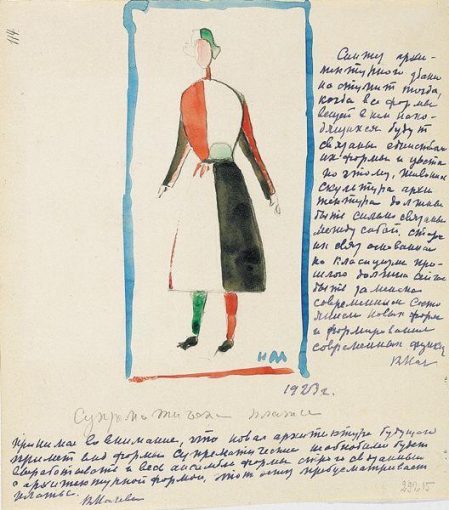 114
Синтез архи-
тектурного здания
наступит тогда,
когда все формы
вещей в нем нахо-
дящихся будут
связаны единством
их формы и цвета
поэтому, живопись
скульптура архи-
тектура должны
быть сильно связаны
между собой,
их связ основанная
на класицизме про-
шлого должна
быть заменена
современным состо
янием новых форм
и формирования
современных
К Мал
НАА
1923 г.
Супрематическое платье
Принимая во внимание, что новая архитектура будущего
примет вид формы супрематические необходимо будет
выработывать и весь ансамбль формы строго связанный
с архитектурной формой, этот эскиз предусматривает
платье.
КМалевич